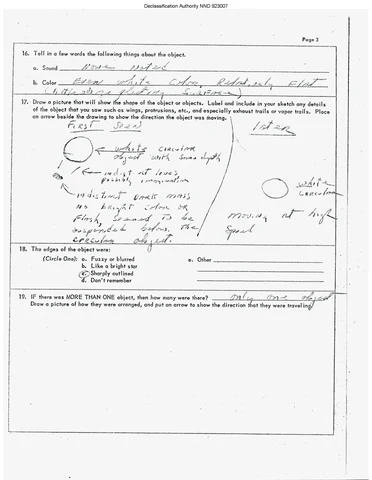 Declassification Authority NND 923007
Page 3
16. Tell in a few words the following things about the object.
a. Sound None Noted
b. Color Even White Color, Relatively Flat
17. Draw a picture that will show the shape of the object or objects. Label and include in your sketch any details
of the object that you saw such as wings, protrusions, etc., and especially exhaust trails or vapor trails. Place
an arrow beside the drawing to show the direction the object was moving.
First Seen
Later
white circular
object with some depth
possibly imagination
white
circular
indistinct dark mass
no bright color or
Flash, seemed to be
suspended below the
circular object.
moving at high
speed
18. The edges of the object were:
(Circle One): a. Fuzzy or blurred
b. Like a bright star
c. Sharply outlined
d. Don't remember
e. Other
19. IF there was MORE THAN ONE object, then how many were there? only one object
Draw a picture of how they were arranged, and put an arrow to show the direction that they were traveling.